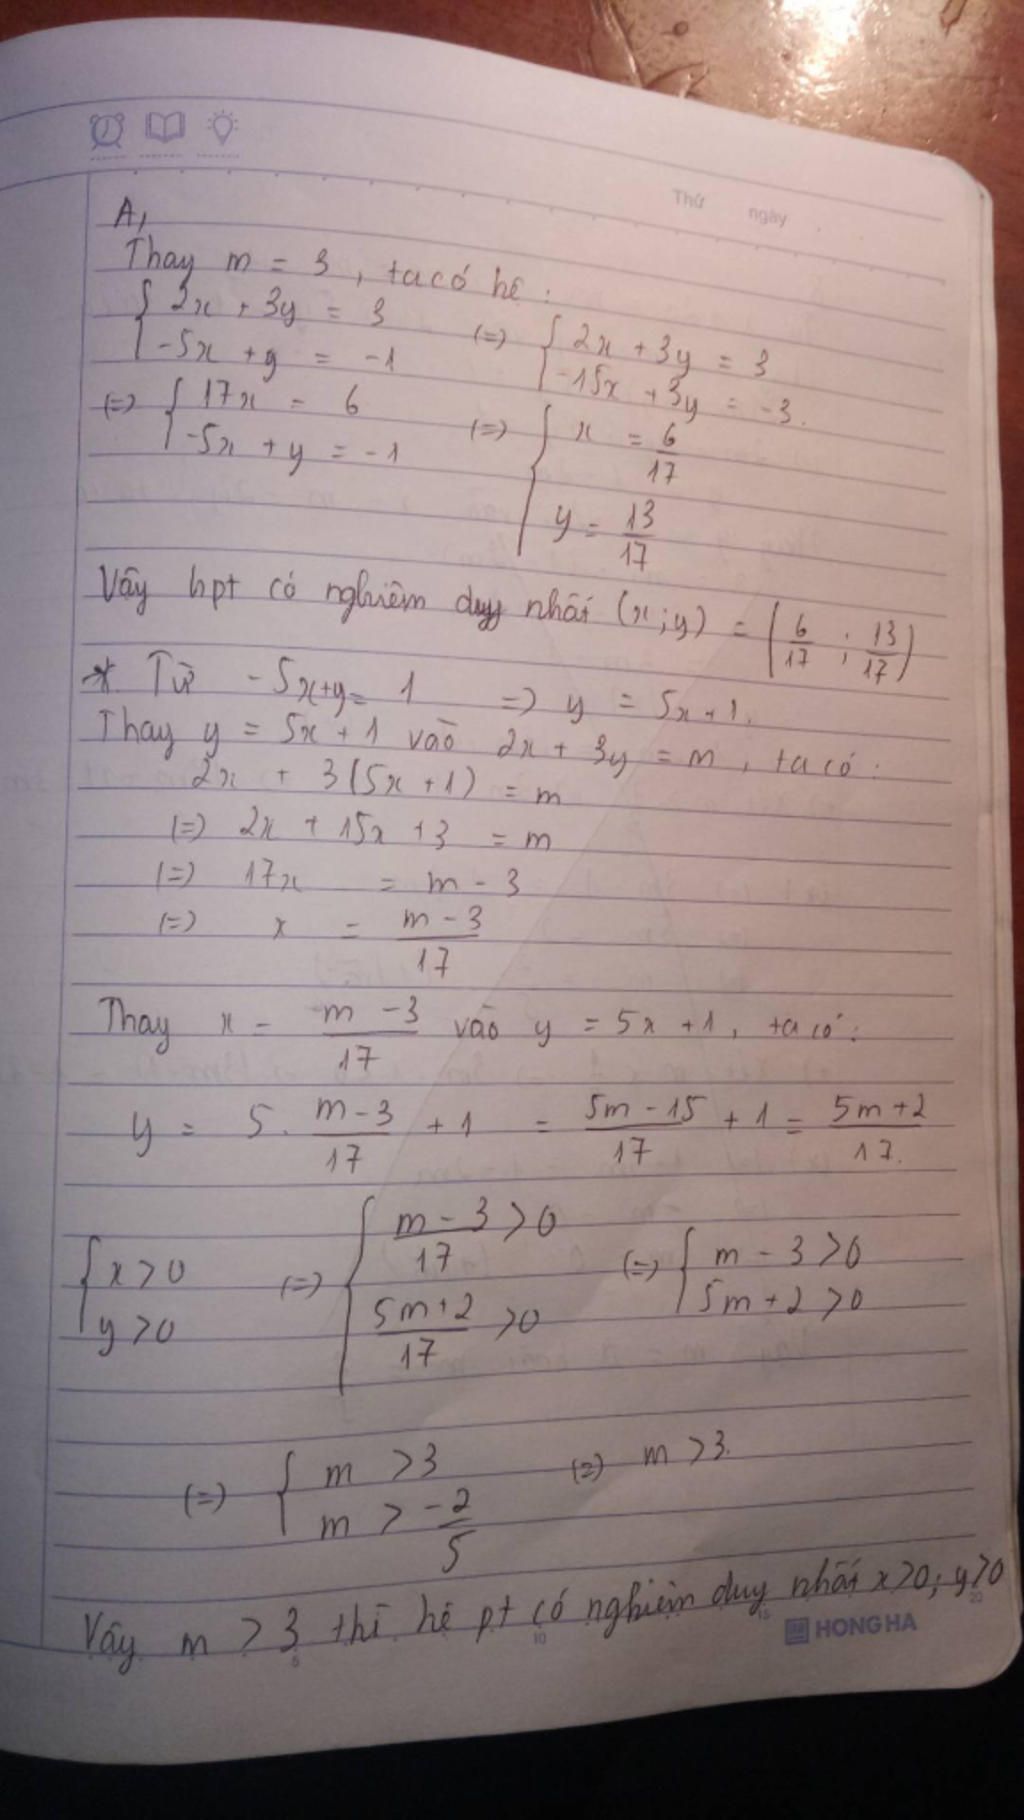 Thứ ngày
A,
Thay m = 3, ta có hệ:
{ 2x + 3y = 3 (=) { 2x + 3y = 3
{ -5x + y = -1 { -15x + 3y = -3.
(=) { 17x = 6 (=) { x = 6/17
{ -5x + y = -1 { y = 13/17
Vậy hpt có nghiệm duy nhất (x;y) = (6/17 ; 13/17)
* Từ -5x+y= 1 => y = 5x+1.
Thay y = 5x + 1 vào 2x + 3y = m, ta có:
2x + 3(5x + 1) = m
(=) 2x + 15x + 3 = m
(=) 17x = m - 3
(=) x = m - 3/17
Thay x = m - 3/17 vào y = 5x + 1, ta có:
y = 5. m - 3/17 + 1 = 5m - 15/17 + 1 = 5m + 2/17.
{ x > 0 (=) { m - 3/17 > 0 (=) { m - 3 > 0
{ y > 0 { 5m + 2/17 > 0 { 5m + 2 > 0
(=) { m > 3 (=) m > 3.
{ m > -2/5
Vậy m > 3 thì hệ pt có nghiệm duy nhất x>0; y>0
5 10 15 20
HONG HA